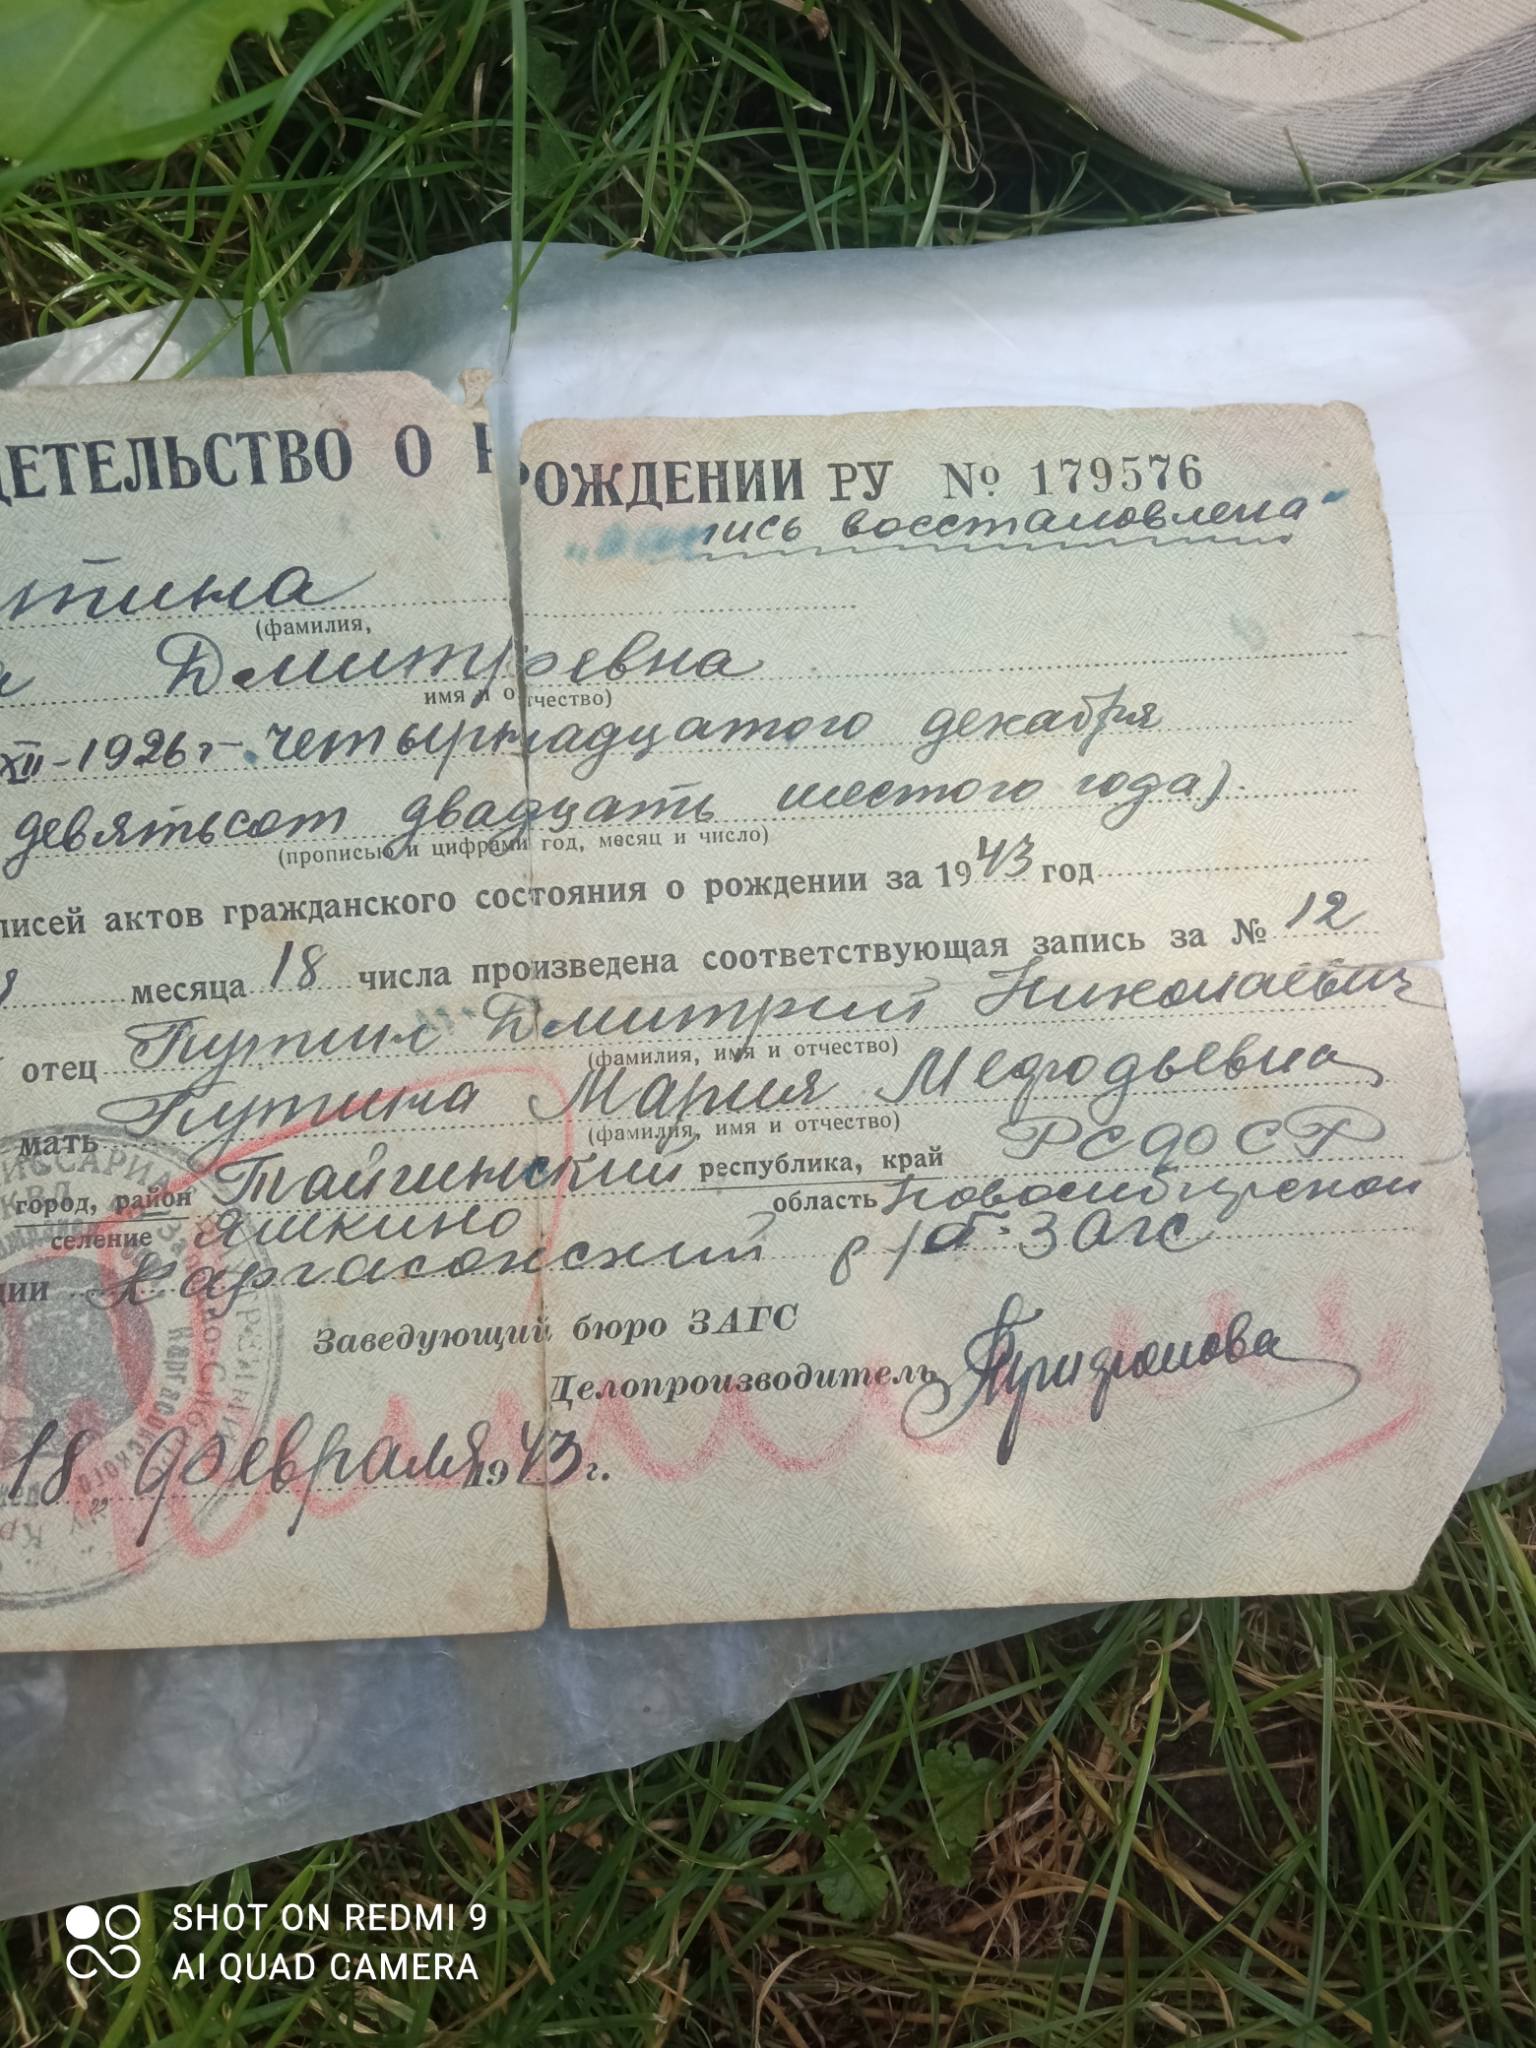 ДЕТЕЛЬСТВО О РОЖДЕНИИ РУ № 179576
"пись восстановлена"
тина
(фамилия,
Дмитревна
имя и отчество)
XII-1926 г - четырнадцатого декабря
девятьсот двадцать шестого года)
(прописью и цифрами год, месяц и число)
писей актов гражданского состояния о рождении за 1943 год
месяца 18 числа произведена соответствующая запись за № 12
отец Путин Дмитрий Николаевич
(фамилия, имя и отчество)
мать Путина Мария Мефодьевна
(фамилия, имя и отчество)
город, район Тайгинский республика, край РСФСР
селение Яшкино область Новосибирской
ции Каргасокский р/б. ЗАГС
Заведующий бюро ЗАГС
Делопроизводитель
18 февраля 1943 г.
SHOT ON REDMI 9
AI QUAD CAMERA